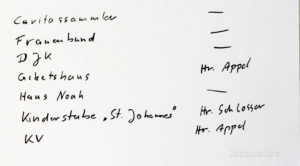 Caritassammler —
Frauenbund —
DJK —
Gebetshaus Hr. Appel
Haus Noah —
Kinderstube „St. Johannes" Hr. Schlosser
KV Hr. Appel